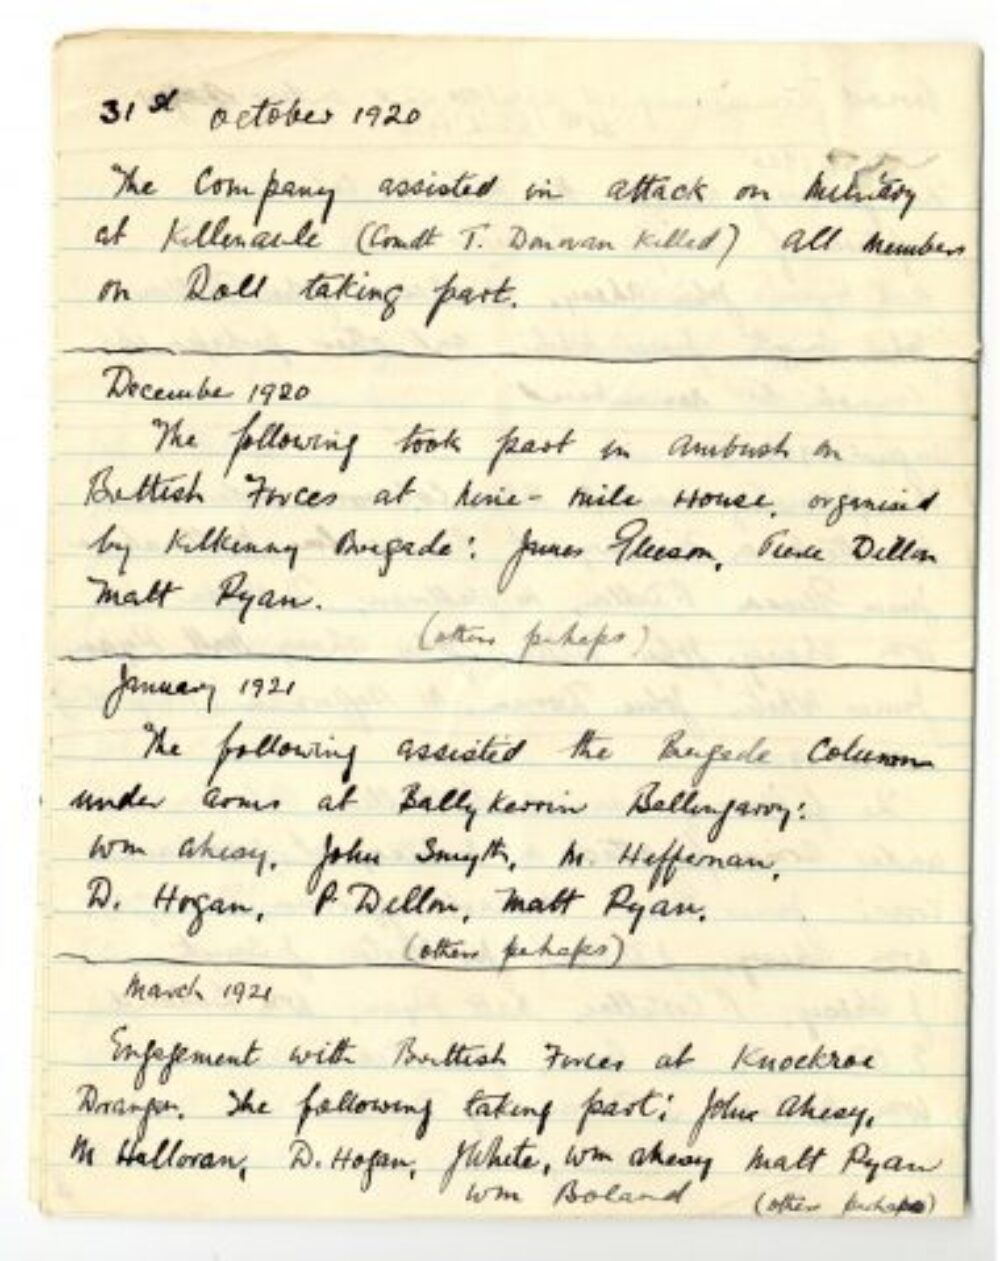 31st October 1920
The Company assisted in attack on Military
at Killenaule (Comdt T. Donovan Killed) all members
on Roll taking part.
December 1920
The following took part in ambush on
Brittish Forces at nine-mile House, organised
by Kilkenny Brigade: James Gleeson, Dillon
Matt Ryan.
(others perhaps)
January 1921
The following assisted the Brigade Column
under arms at Ballykerrin Ballingarry:
Wm Ahesy, John Smyth, M. Heffernan,
D. Hogan, P. Dillon, Matt Ryan.
(others perhaps)
March 1921
Engagement with Brittish Forces at Knockroe
Drangan. The following taking part: John Ahesy,
M Halloran, D. Hogan, J White, Wm Ahesy Matt Ryan
Wm Boland (others perhaps)